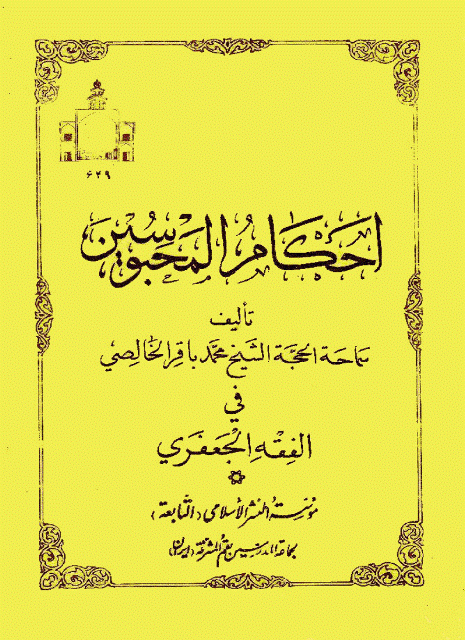 ٦٢٩
احكام المحبوسين
تأليف
سماحة الحجة الشيخ محمد باقر الخالصي
في
الفقه الجعفري
مؤسسة النشر الأسلامي (التابعة)
لجماعة المدرسين بقم المشرفة (ايران)